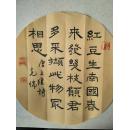 紅豆生南國春
來發幾枝願君
多采擷此物最
相思